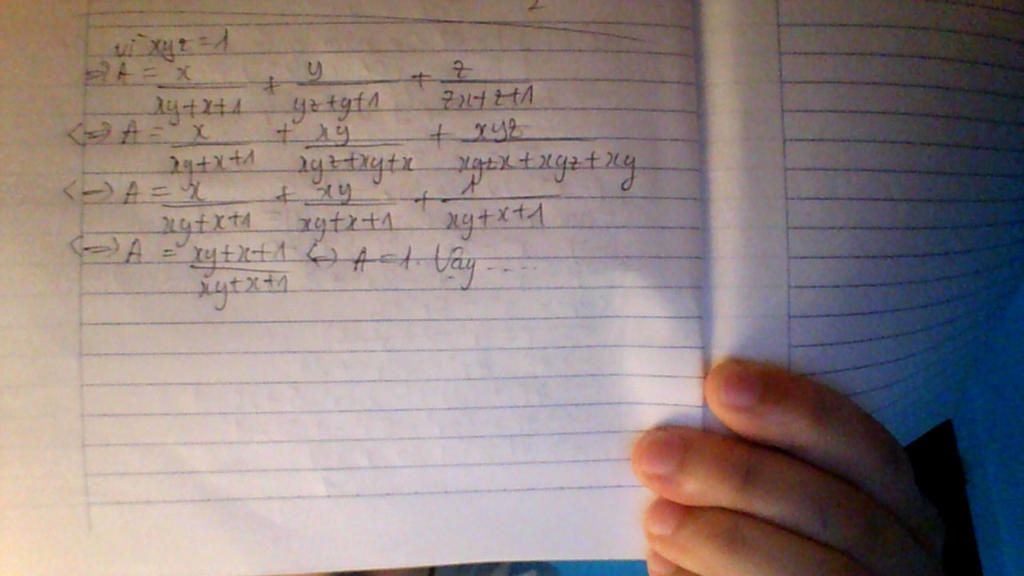 vì xyz = 1
=> A = x/(xy+x+1) + y/(yz+y+1) + z/(zx+z+1)
<=> A = x/(xy+x+1) + xy/(xyz+xy+x) + xyz/(xyzx+xyz+xy)
<=> A = x/(xy+x+1) + xy/(xy+x+1) + 1/(xy+x+1)
<=> A = (xy+x+1)/(xy+x+1) <=> A = 1. Vậy ....